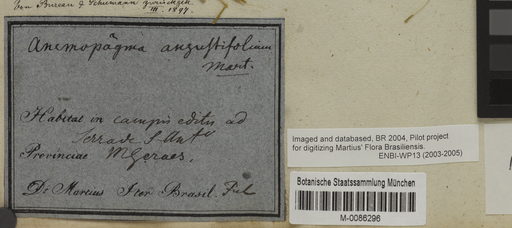 von Bureau & Schumann zurückges.
III. 1897.
Anemopägma angustifolium
Mart.
Habitat in campis editis ad
Serra de S. Ant
Provinciae M Geraes.
Dr Martius Iter Brasil.
Imaged and databased, BR 2004, Pilot project
for digitizing Martius' Flora Brasiliensis.
ENBI-WP13 (2003-2005)
Botanische Staatssammlung München
M-0086296